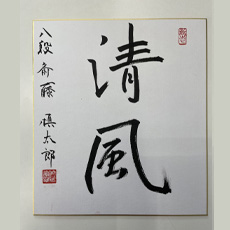 清風
八段 斎藤慎太郎